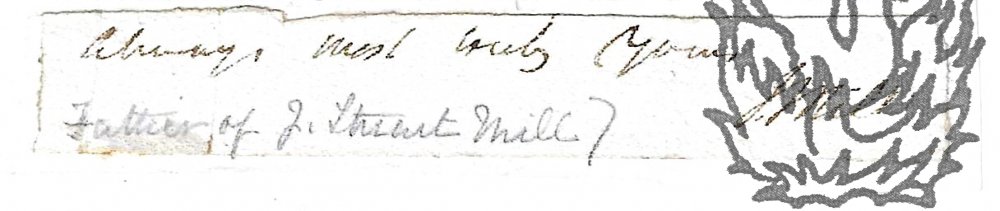 Always most truly yours
J Mill
Father of J. Stuart Mill)